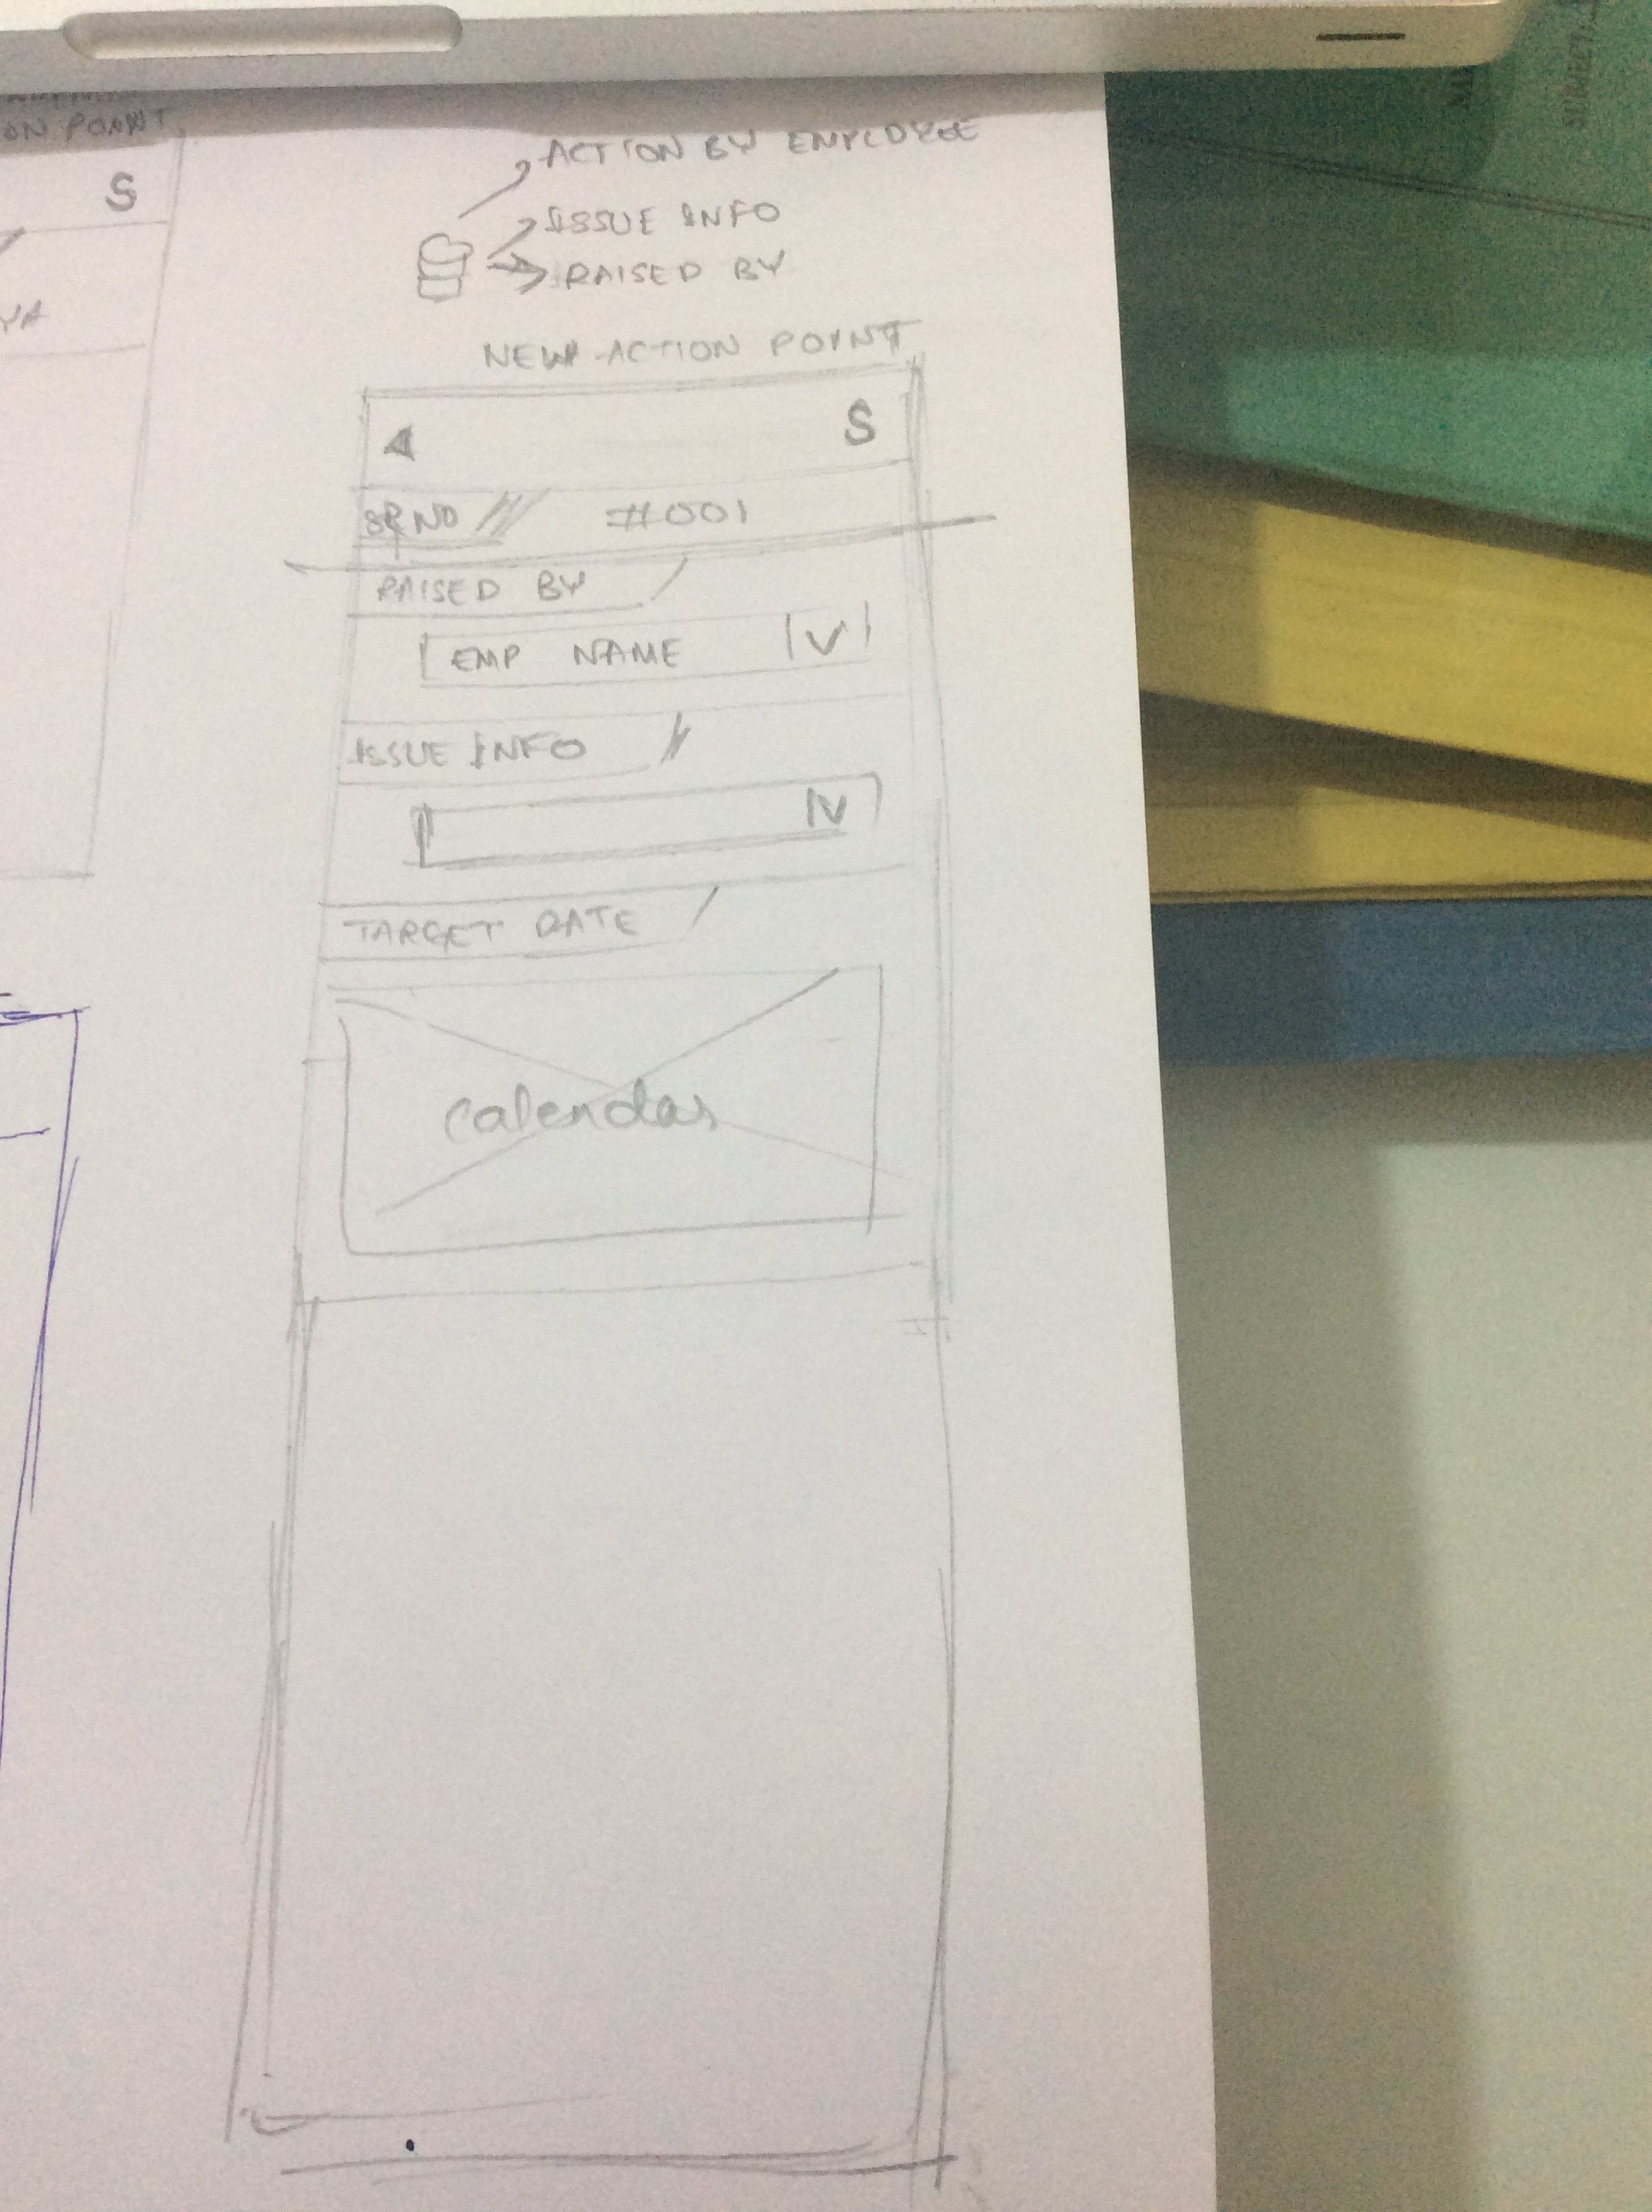 ON POINT
S
YA
ACTION BY EMPLOYEE
ISSUE INFO
RAISED BY
NEW ACTION POINT
S
SR NO #001
RAISED BY
EMP NAME V
ISSUE INFO
V
TARGET DATE
calendar